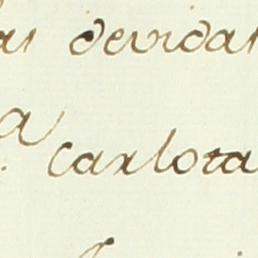 as devidas
a Carlota